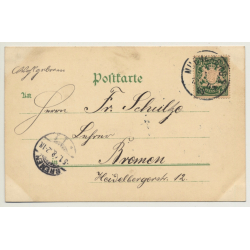 Postkarte
An
Herrn Fr. Schultze
Lehrer
Bremen
Heidelbergerstr. 12